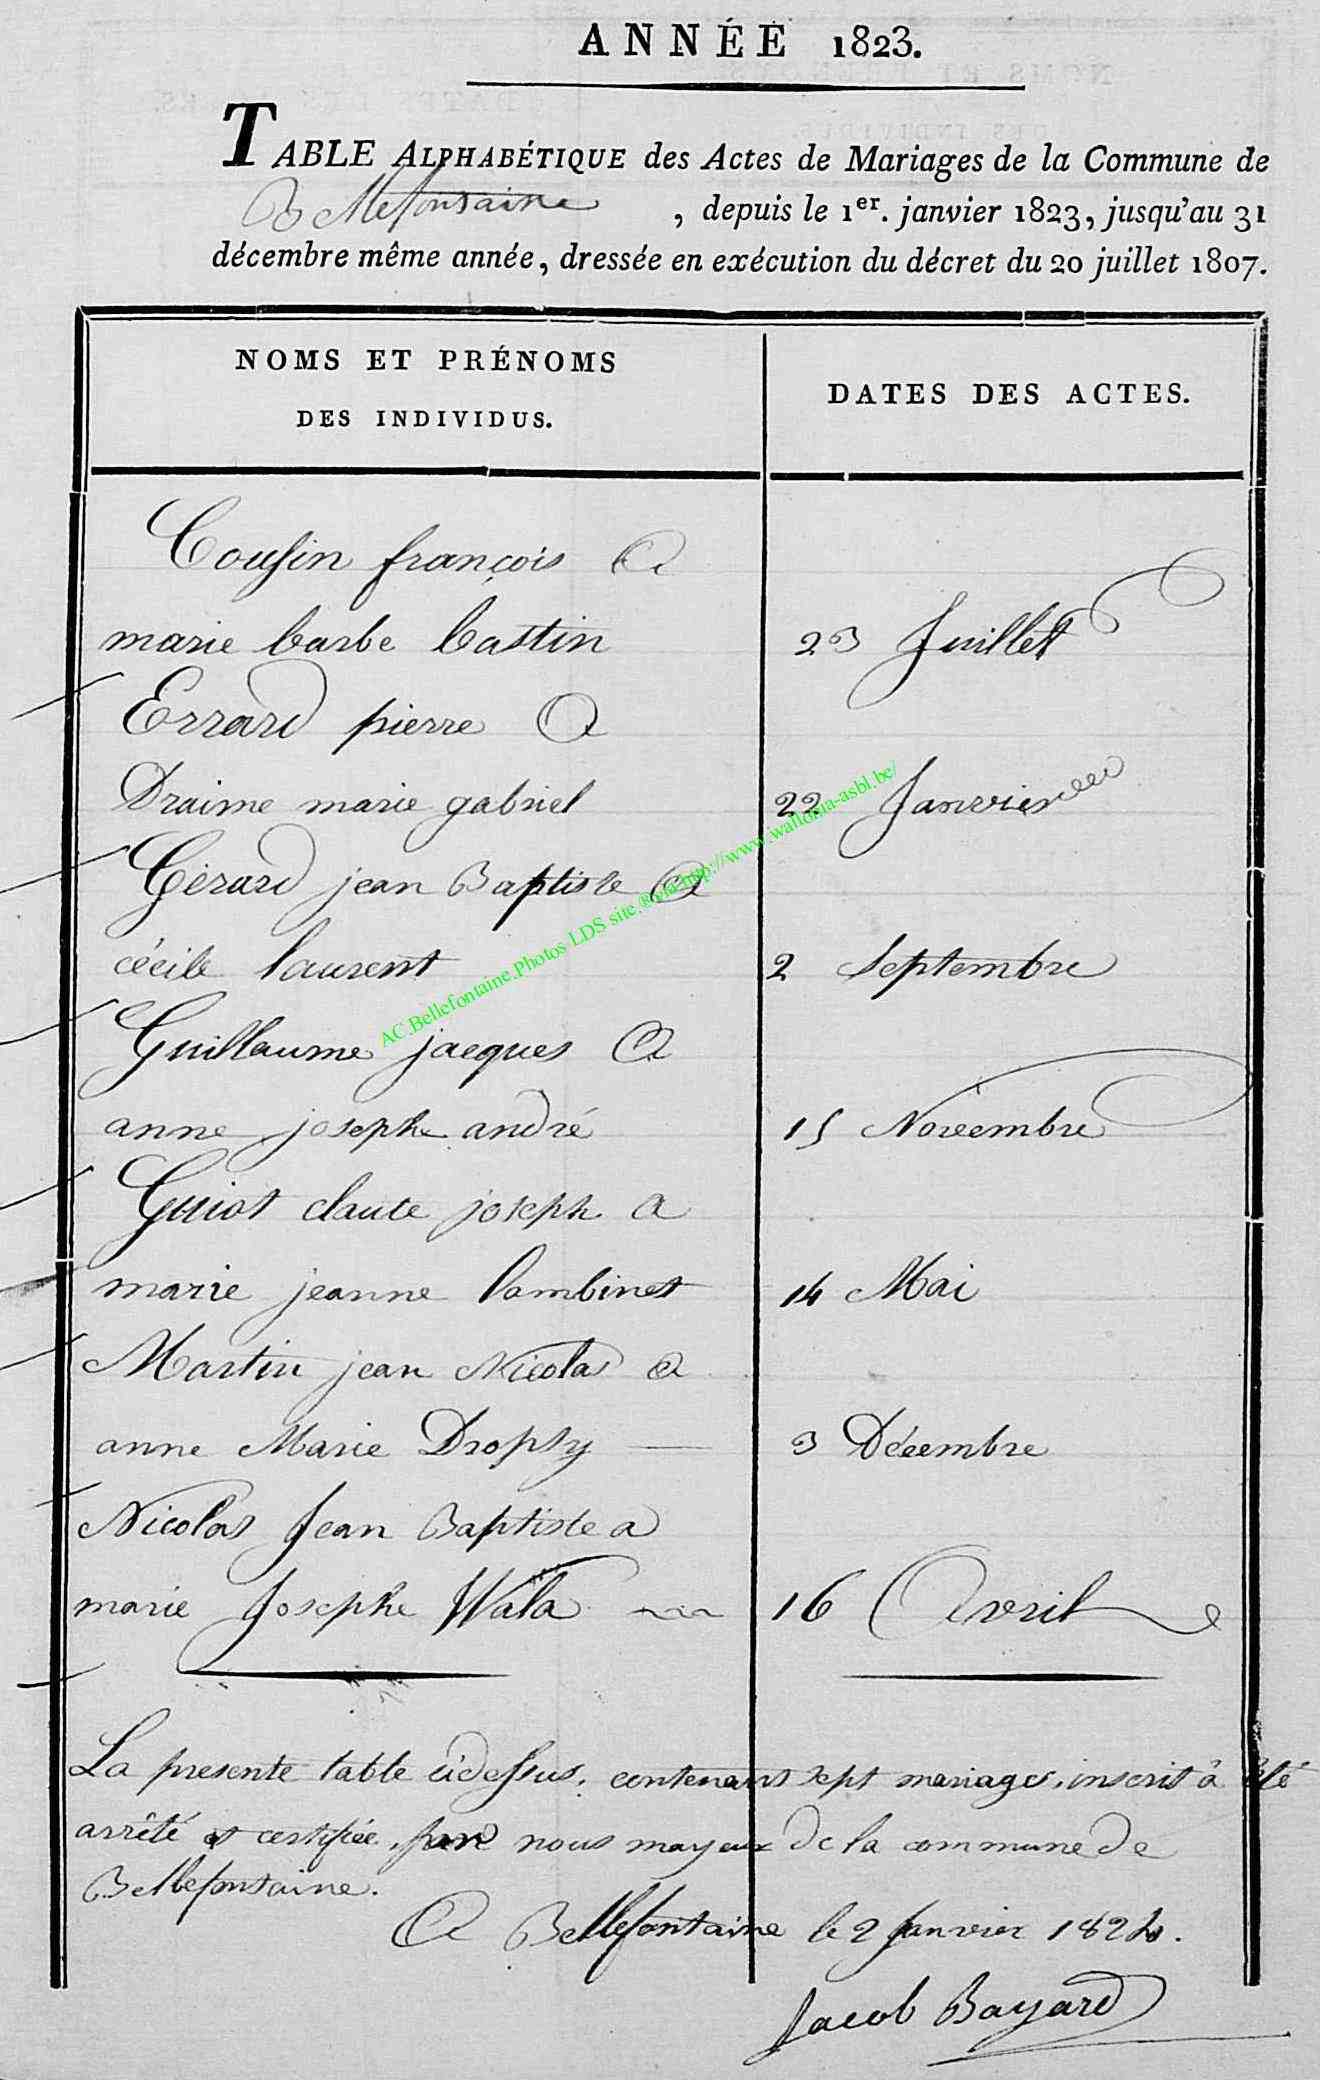 ANNÉE 1823.
TABLE ALPHABÉTIQUE des Actes de Mariages de la Commune de
Bellefontaine, depuis le 1er. janvier 1823, jusqu'au 31
décembre même année, dressée en exécution du décret du 20 juillet 1807.
NOMS ET PRÉNOMS
DES INDIVIDUS.
DATES DES ACTES.
Cousin françois a
marie barbe bastin 23 Juillet
Errard pierre a
Draime marie gabriel 22 Janvier
Gérard jean Baptiste a
cécile laurent 2 Septembre
Guillaume jacques a
anne josephe andré 15 Novembre
Guiot claute joseph a
marie jeanne lambinet 14 Mai
Martin jean Nicolas a
anne Marie Dropsy 3 Décembre
Nicolas Jean Baptiste a
marie Josephe Wala 16 Avril
La presente table cidessus, contenant sept mariages, inscrit à été
arrêté et certifiée, par nous mayeur de la commune de
Bellefontaine.
A Bellefontaine le 2 Janvier 1824.
Jacob Bayard
AC.Bellefontaine.Photos LDS site.®via http://www.wallonia-asbl.be/